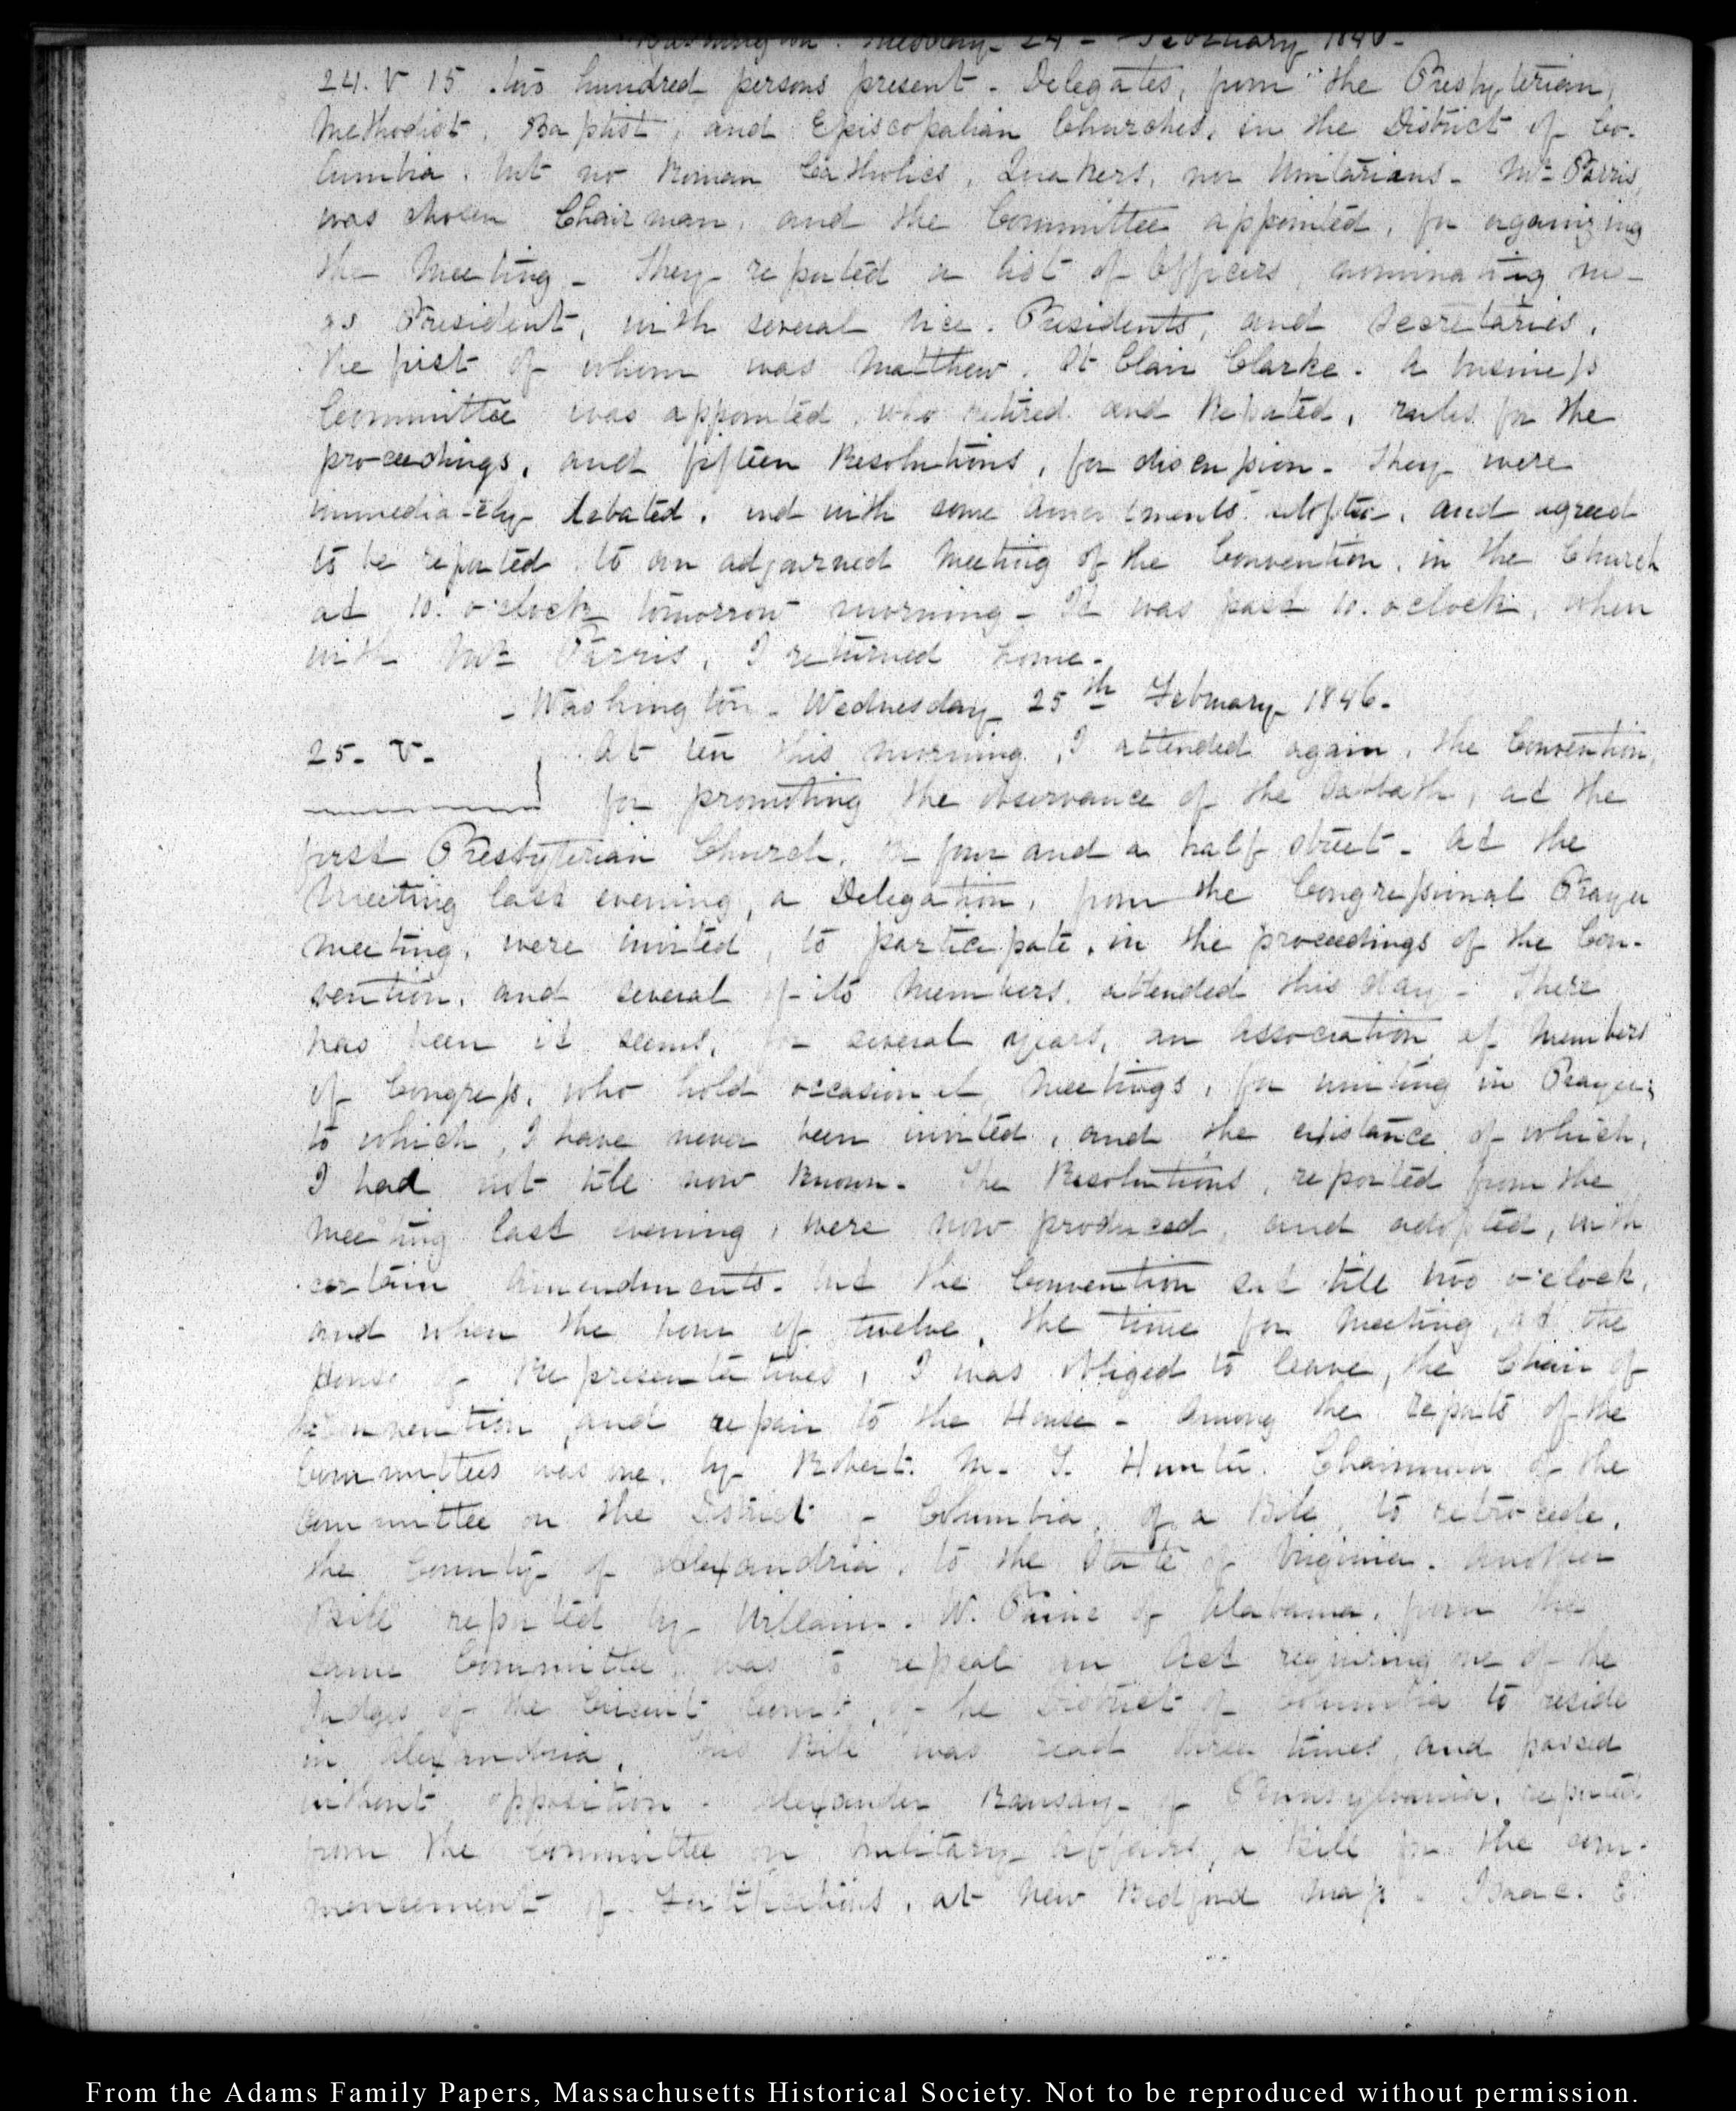 Washington. Tuesday 24 - February 1846-
24. V 15 two hundred persons present - Delegates, from the Presbyterian,
Methodist, Baptist, and Episcopalian Churches, in the District of Co-
lumbia. but no Roman Catholics, Quakers, nor Unitarians - Mr Parris,
was chosen Chairman, and the Committee appointed, for organizing
the Meeting - They reported a list of Officers, nominating me
as President, with several Vice. Presidents, and Secretaries,
the first of whom was Matthew. St Clair Clarke. A business
Committee was appointed, who retired and Reported, rules for the
proceedings, and fifteen Resolutions, for discussion - They were
immediately debated, and with some amendments adopted, and agreed
to be reported, to an adjourned Meeting of the Convention, in the Church
at 10. o'clock tomorrow morning - It was past 10. o'clock, when
with Mr Parris, I returned home -
- Washington - Wednesday 25th February 1846 -
25. V. At ten this morning, I attended again, the Convention,
for promoting the observance of the Sabbath, at the
first Presbyterian Church, in four and a half street - At the
Meeting last evening, a Delegation, from the Congressional Prayer
Meeting, were invited, to participate, in the proceedings of the Con-
vention, and several of its Members, attended this day - There
has been it seems, for several years, an association of Members
of Congress, who hold occasional Meetings, for uniting in Prayer;
to which, I have never been invited, and the existance of which,
I had not till now known - The Resolutions, reported from the
Meeting last evening, were now produced, and adopted, with
certain amendments. but the Convention sat till two o'clock,
and when the hour of twelve, the time for Meeting, at the
House of Representatives, I was obliged to leave, the Chair of
the Convention, and repair to the House - Among the reports of the
Committees was one, by Robert. M. T. Hunter. Chairman of the
Committee on the District of Columbia, of a Bill, to retrocede,
the County of Alexandria, to the State of Virginia. Another
Bill reported by William. W. Payne of Alabama, from the
same Committee, was to repeal an Act requiring one of the
Judges of the Circuit Court, of the District of Columbia to reside
in Alexandria. This Bill was read three times, and passed
without opposition. Alexander Ramsay of Pennsylvania, reported
from the Committee on Military Affairs, a Bill for the com-
mencement of Fortifications, at New Bedford Mass - Isaac. E.
From the Adams Family Papers, Massachusetts Historical Society. Not to be reproduced without permission.